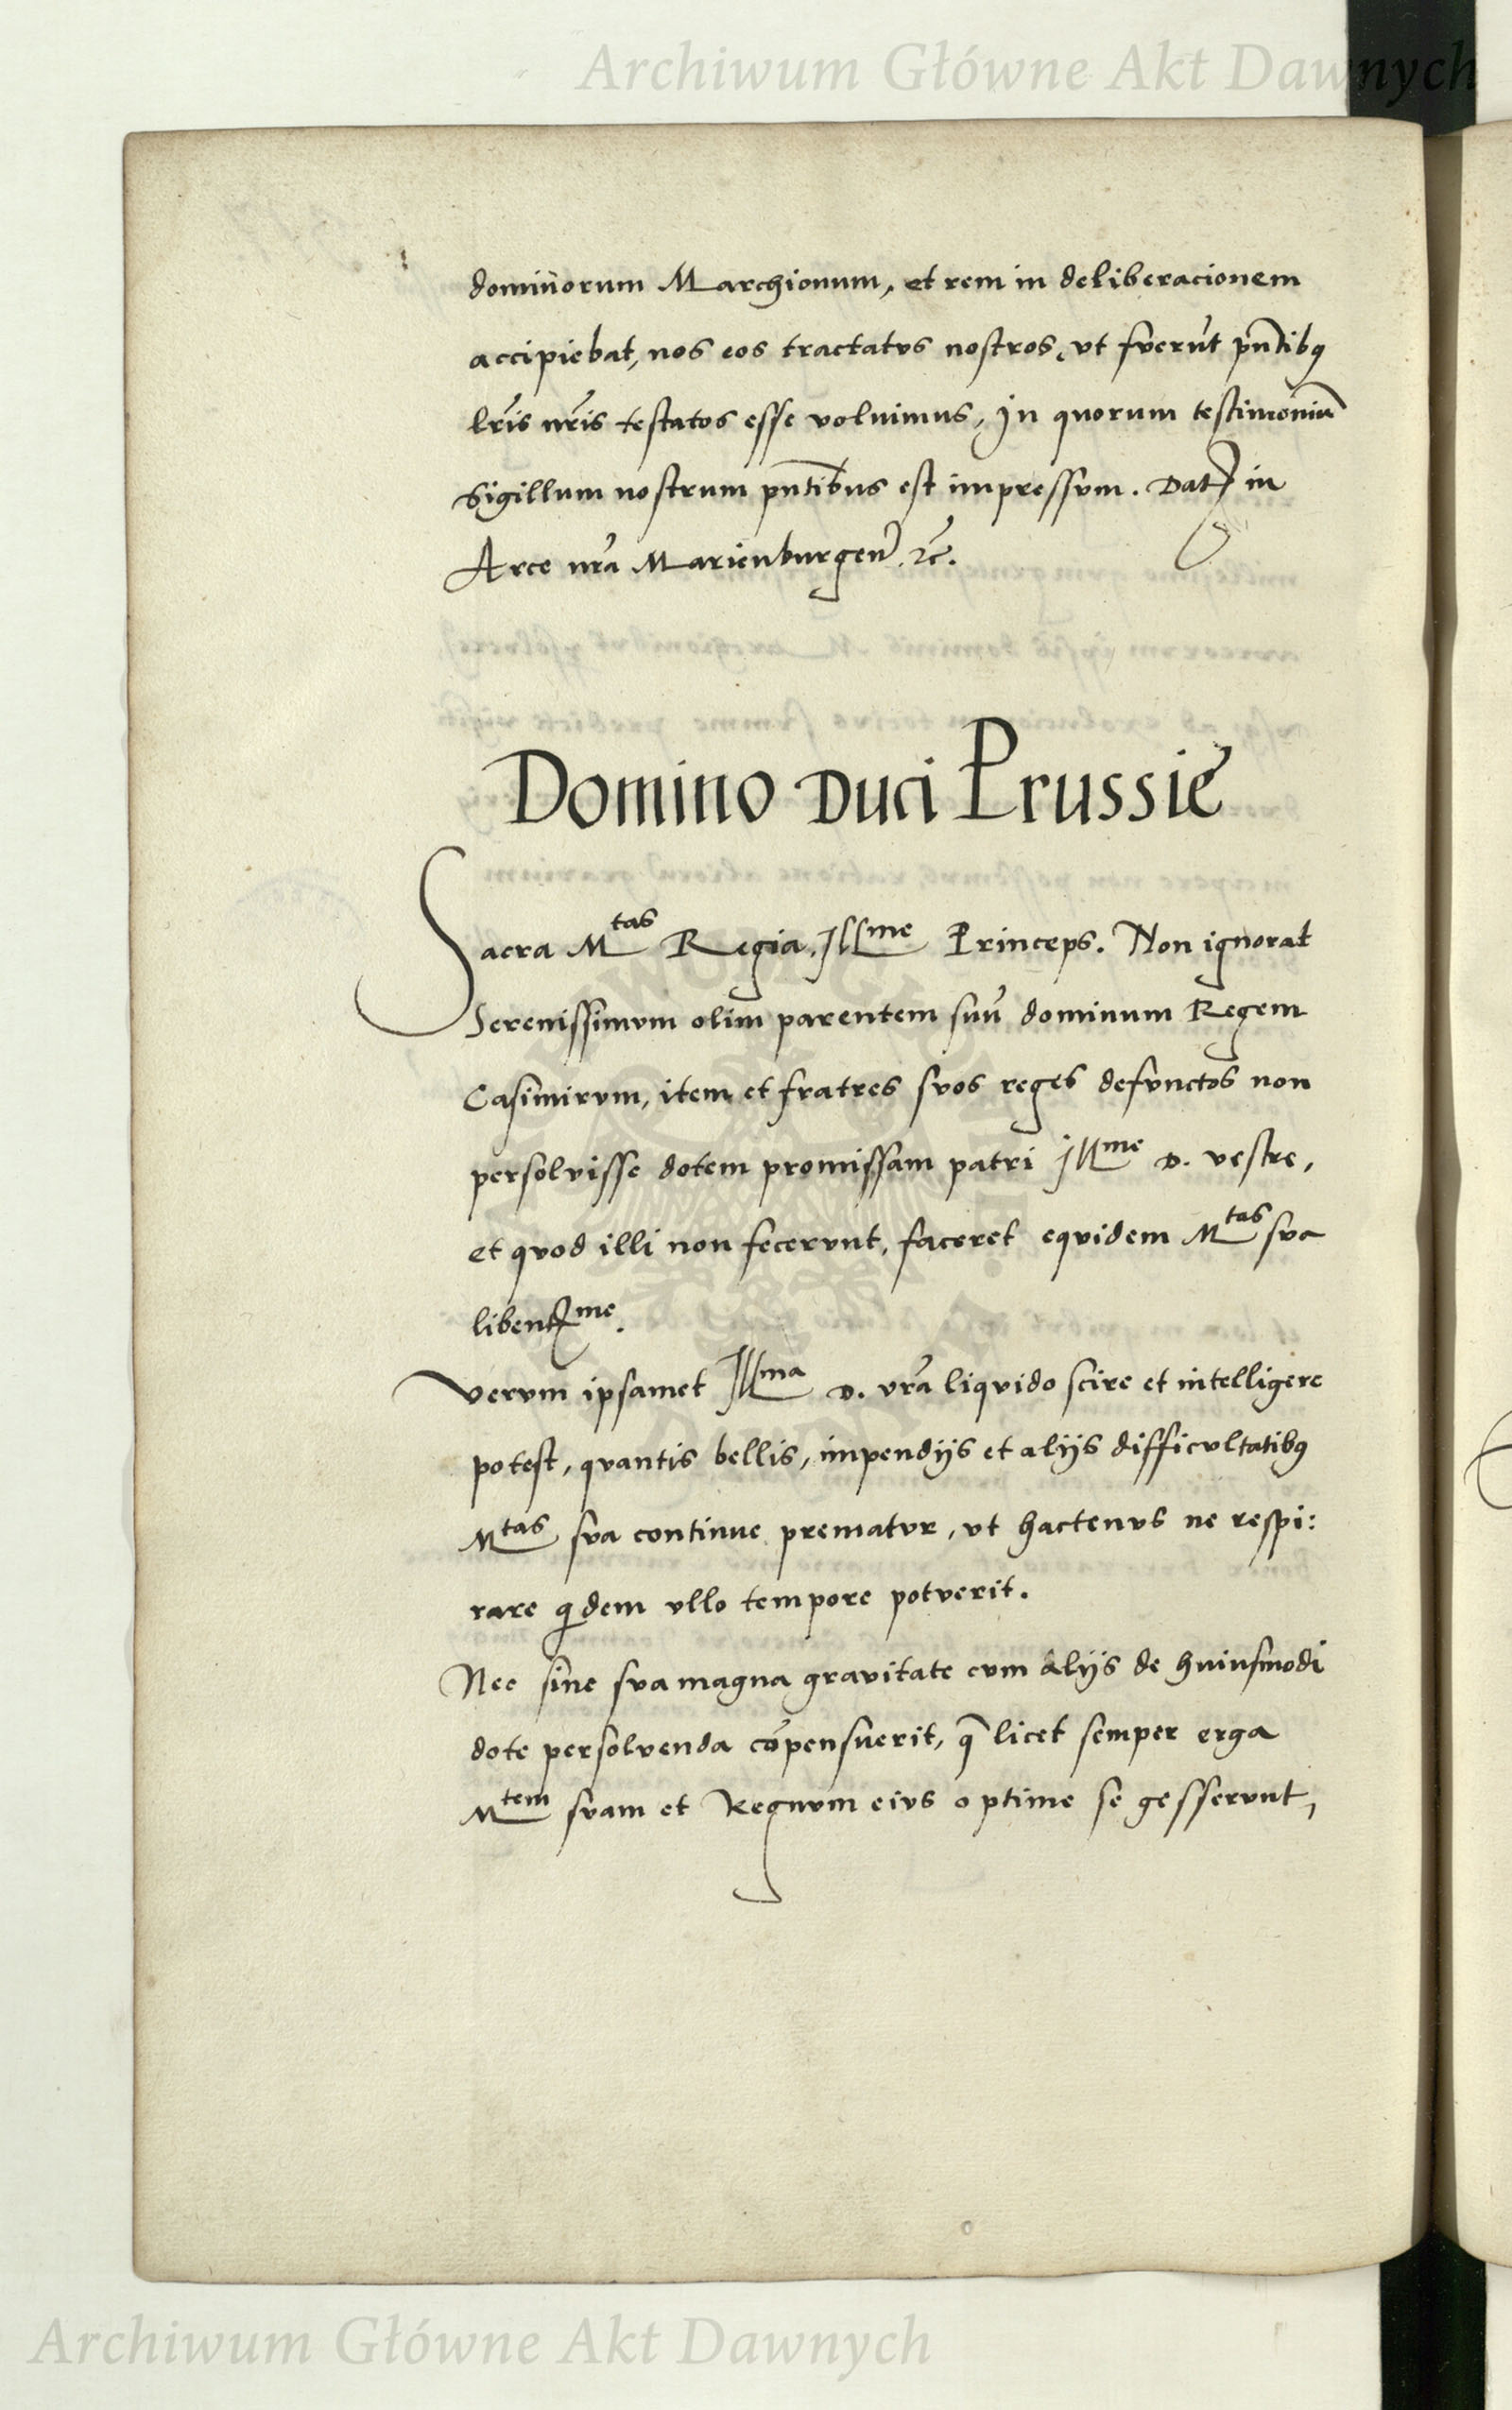 Archiwum Główne Akt Dawnych
dominorum Marchionum, et rem in deliberacionem
accipiebat, nos eos tractatvs nostros, vt fverūt pn̄tibq
lr̄is nr̄is testatos esse voluimus, Jn quorum testimoniū
sigillum nostrum pn̄tibus est impressvm. Dat in
Arce nr̄a Marienburgen̄. zc̄.
Domino Duci Prussie
Sacra Mtas Regia. Jllme Princeps. Non ignorat
Serenissimvm olim parentem suū dominum Regem
Casimirvm, item et fratres svos reges defvnctos non
persolvisse dotem promissam patri Jllme D. vestre,
et qvod illi non fecervnt, faceret eqvidem Mtas sva
libentme.
Vervm ipsamet Jllma D. vr̄a liqvido scire et intelligere
potest, qvantis bellis, impendijs et alijs difficvltatibq
Mtas sva continue prematvr, vt hactenvs ne respi:
rare qdem vllo tempore potverit.
Nec sine sva magna grauitate cvm alijs de huiusmodi
dote persolvenda cōpensuerit, q̄ licet semper erga
Mtem svam et Regnvm eivs optime se gesservnt,
Archiwum Główne Akt Dawnych